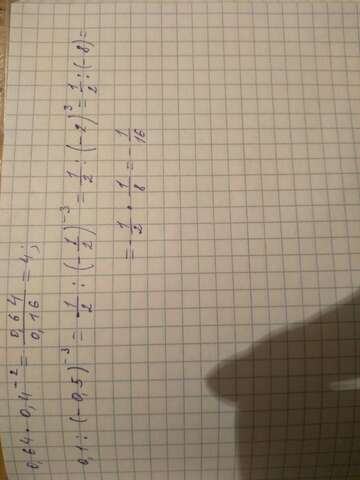 0,64 · 0,4⁻² = 0,64/0,16 = 4;
0,1 : (-0,5)⁻³ = 1/2 : (-1/2)⁻³ = 1/2 : (-2)³ = 1/2 : (-8) =
= -1/2 · 1/8 = -1/16